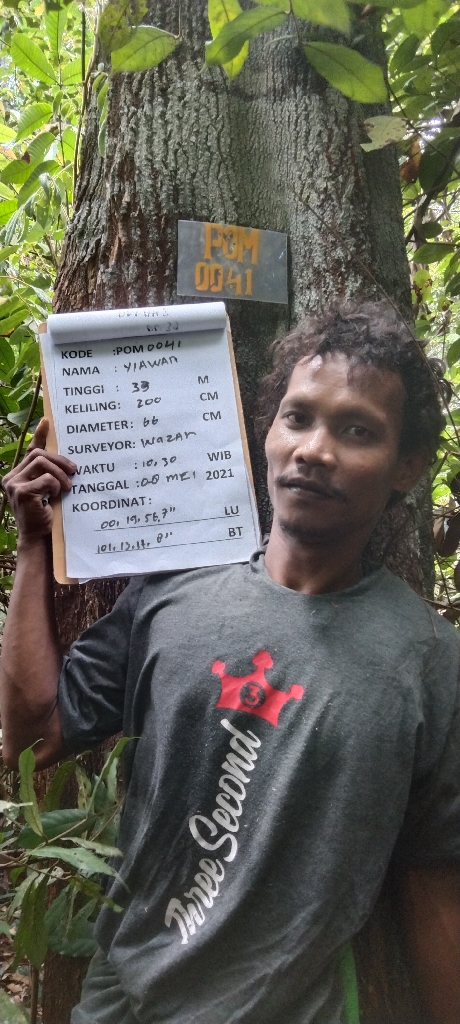 POM
0041
KODE :POM0041
NAMA : YIAWAN
TINGGI : 33 M
KELILING: 200 CM
DIAMETER: 66 CM
SURVEYOR: WAZAR
WAKTU : 10.30 WIB
TANGGAL : 08 MEI 2021
KOORDINAT:
00. 19. 56,7" LU
BT
3
Three Second